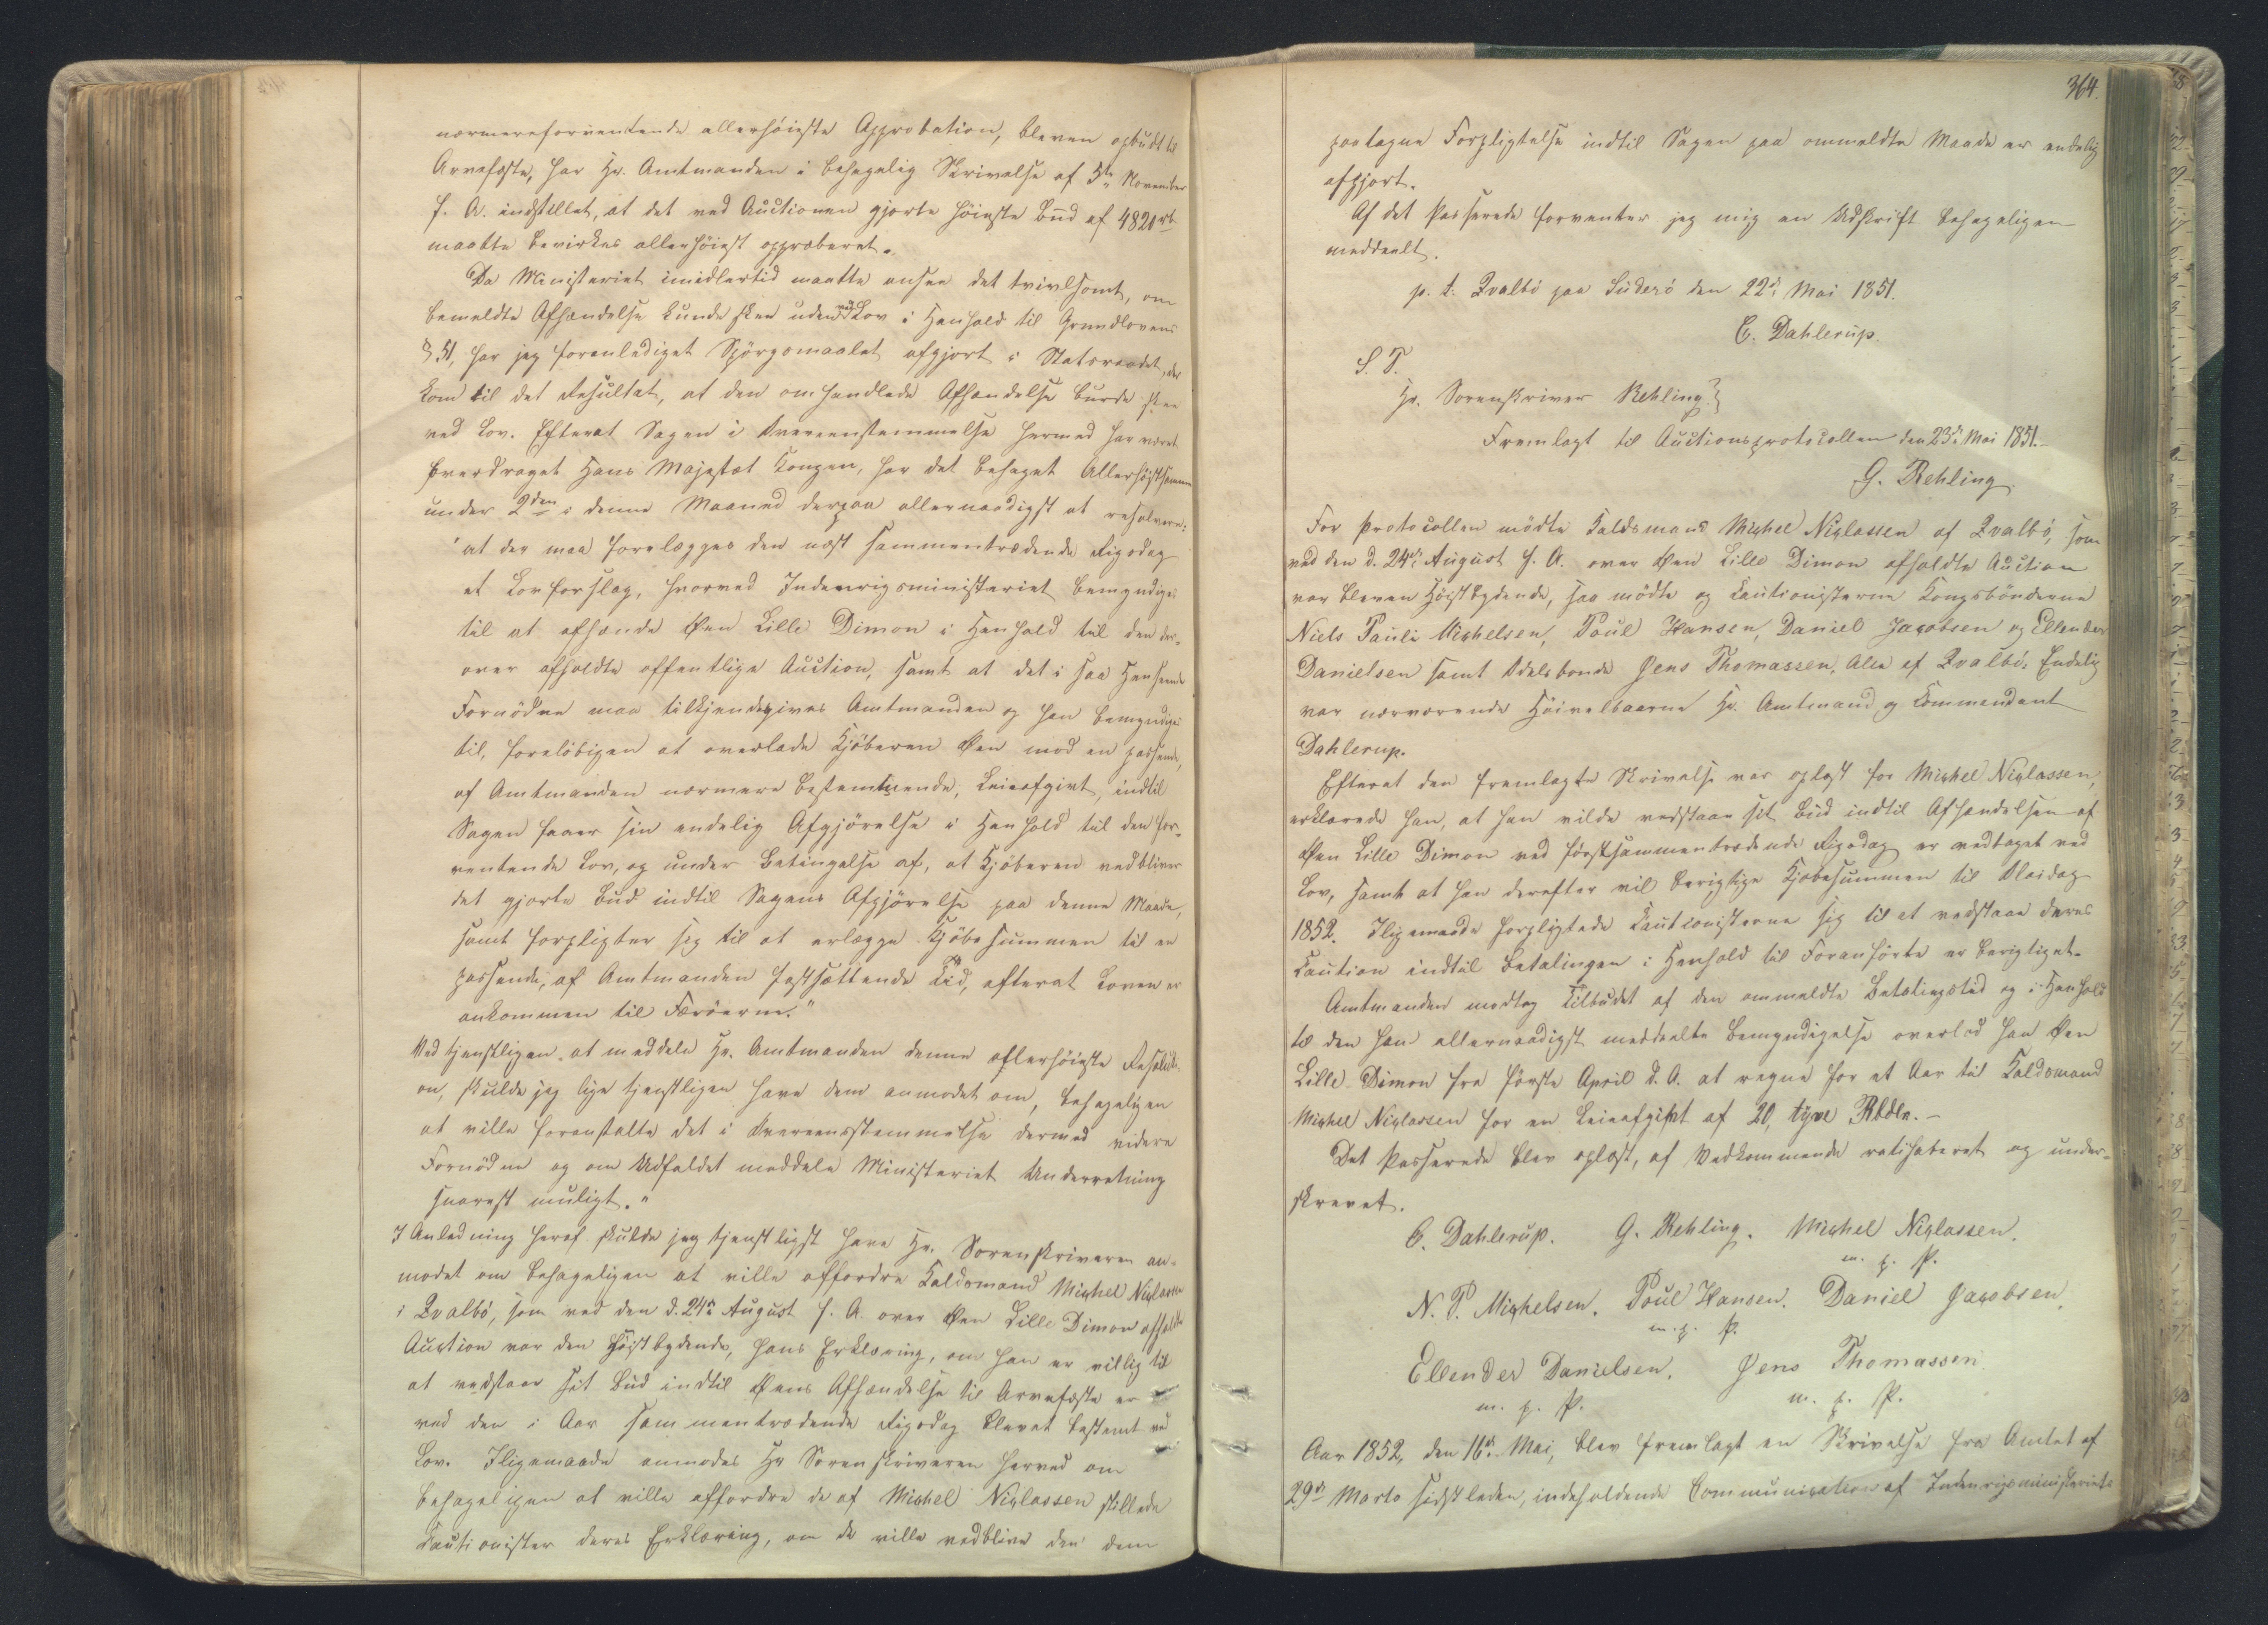 nærmereforventende allerhøieste Approbation, bleven opbudt til
Arvefæste, har Hr. Amtmanden i behagelig Skrivelse af 5te November
f. A. indstillet, at det ved Auctionen gjorte høieste Bud af 4820 rb
maatte bevirkes allerhøiest approberet.
Da Ministeriet imidlertid maatte ansee det tvivlsomt, om
bemeldte Afhændelse kunde skee uden ved Lov i Henhold til Grundlovens
§ 51, har jeg foranlediget Spörgsmaalet afgjort i Statsraadet, der
kom til det Resultat, at den omhandlede Afhændelse burde skee
ved Lov. Efterat Sagen i Overeensstemmelse hermed har været
foredraget Hans Majestæt Kongen, har det behaget Allerhøistsamme
under 2den i denne Maaned derpaa allernaadigst at resolvere:
"at der maa forelægges den næst sammentrædende Rigsdag
et Lovforslag, hvorved Indenrigsministeriet bemyndiges
til at afhænde Øen Lille Dimon i Henhold til den der-
over afholdte offentlige Auction, samt at det i saa Henseende
Fornödne maa tilkjendegives Amtmanden og han bemyndiges
til, foreløbigen at overlade Kjöberen Øen mod en passende,
af Amtmanden nærmere bestemmende, Leieafgivt, indtil
Sagen faaer sin endelig Afgjörelse i Henhold til den for-
ventende Lov, og under Betingelse af, at Kjöberen vedbliver
det gjorte Bud indtil Sagens Afgjörelse paa denne Maade,
samt forpligter sig til at erlægge Kjöbesummen til en
passende, af Amtmanden fastsættende Tid, efterat Loven er
ankommen til Færöerne."
Ved tjenstligen at meddele Hr. Amtmanden denne allerhöieste Resoluti-
on, skulde jeg lige tjenstligen have dem anmodet om, behageligen
at ville foranstalte det i Overeensstemmelse dermed videre
Fornödne og om Udfaldet meddele Ministeriet Underretning
snarest muligt."
I Anledning heraf skulde jeg tjenstligst have Hr. Sorenskriveren an-
modet om behageligen at ville affordre Kaldsmand Michel Niclassen
i Qvalbö, som ved den d. 24de August f. A. over Øen Lille Dimon afholdte
Auction var den Höistbydende, hans Erklæring, om han er villig til
at vedstaae sit Bud indtil Øens Afhændelse til Arvefæste er
ved den i Aar sammentrædende Rigsdag blevet bestemt ved
Lov. Iligemaade anmodes Hr Sorenskriveren herved om
behageligen at ville affordre de af Michel Niclassen stillede
Cautionister deres Erklæring, om de ville vedblive den dem
364.
paatagne Forpligtelse indtil Sagen paa ommeldte Maade er endelig
afgjort.
Af det Passerede forventer jeg mig en Udskrift behageligen
meddeelt.
p. t. Qvalbö paa Süderö den 22de Mai 1851.
C. Dahlerup.
S. T.
Hr. Sorenskriver Rehling.
Fremlagt til Auctionsprotocollen den 23de Mai 1851.
G. Rehling.
For Protocollen mödte Kaldsmand Michel Niclassen af Qvalbö, som
ved den d. 24de August f. A. over Øen Lille Dimon afholdte Auction
var bleven Höistbydende, saa mödte og Cautionisterne Kongsbönderne
Niels Pauli Michelsen, Poul Hansen, Daniel Jacobsen og Ellender
Danielsen samt Odelsbonde Jens Thomassen, Alle af Qvalbö. Endelig
var nærværende Höivelbaarne Hr. Amtmand og Commendant
Dahlerup.
Efterat den fremlagte Skrivelse var oplæst for Michel Niclassen,
erklærede han, at han vilde vedstaae sit Bud indtil Afhændelsen af
Øen Lille Dimon ved förstsammentrædende Rigsdag er vedtaget ved
Lov, samt at han derefter vil berigtige Kjøbesummen til Olaidag
1852. Iligemaade forpligtede Cautionisterne sig til at vedstaae deres
Caution indtil Betalingen i Henhold til Foranförte er berigtiget.
Amtmanden modtog Tilbudet af den ommeldte Betalingstid og i Henhold
til den ham allernaadigst meddeelte Bemyndigelse overlod han Øen
Lille Dimon fra förste April d. A. at regne for et Aar til Kaldsmand
Michel Niclassen for en Leieafgivt af 20, tyve Rbdlr. -
Det Passerede blev oplæst, af Vedkommende ratihaberet og under-
skrevet.
C. Dahlerup. G. Rehling. Michel Niclassen.
m. f. P.
N. P. Michelsen. Poul Hansen. Daniel Jacobsen.
m. f. P.
Ellender Danielsen. Jens Thomassen.
m. f. P. m. f. P.
Aar 1852, den 16de Mai, blev fremlagt en Skrivelse fra Amtet af
29de Marts sidstleden, indeholdende Communication af Indenrigsministeriets